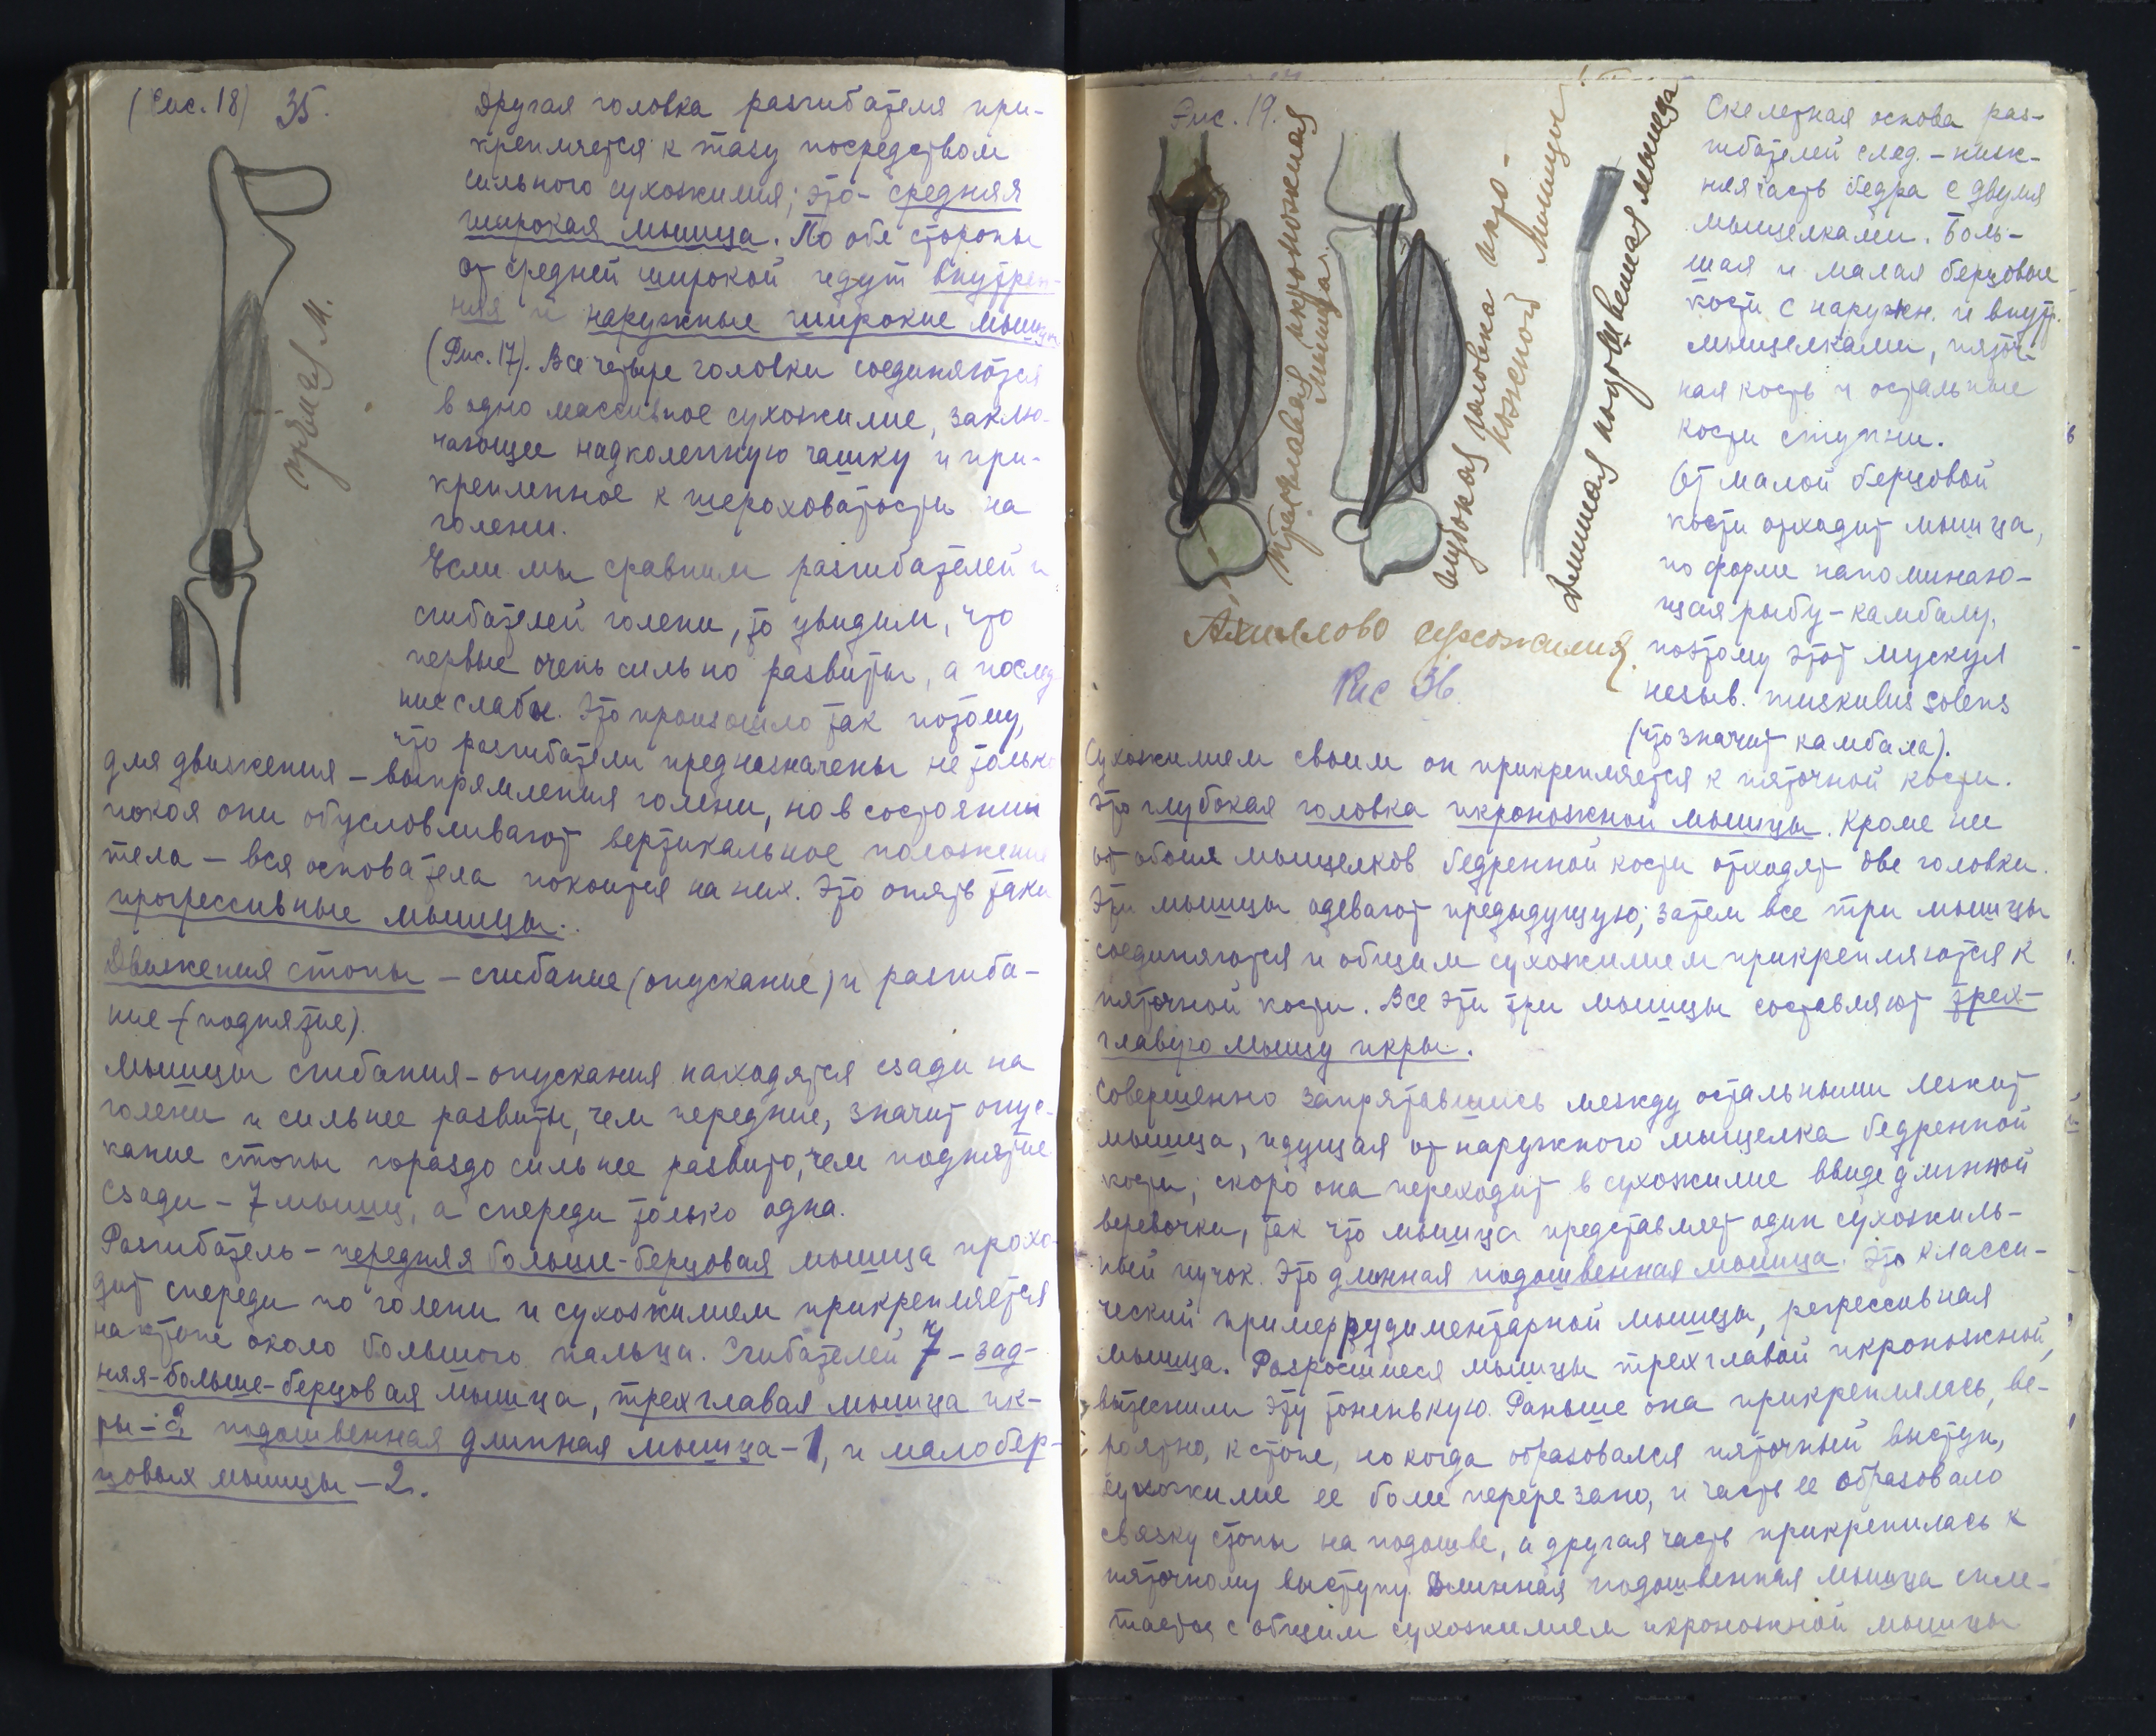 (Рис. 18) 35.
Другая головка разгибателя при-
крепляется к тазу посредством
сильного сухожилия; это - средняя
широкая мышца. По обе стороны
от средней широкой идут внутрен-
няя и наружные широкие мышцы
(Рис. 17). Все четыре головки соединяются
в одно массивное сухожилие, заклю-
чающее надколенную чашку и при-
крепленное к шероховатости на
голени.
Если мы сравним разгибателей и
сгибателей голени, то увидим, что
первые очень сильно развиты, а послед
ние слабы. Это произошло так потому,
что разгибатели предназначены не только
для движения – выпрямления голени, но в состоянии
покоя они обусловливают вертикальное положение
тела – вся основа тела покоится на них. Это опять таки
прогрессивные мышцы.
Движения стопы – сгибание (опускание) и разгиба-
ние - (поднятие).
Мышцы сгибания - опускания находятся сзади на
голени и сильнее развиты, чем передние, значит опус-
кание стопы гораздо сильнее развито, чем поднятие
Сзади – 7 мышц, а спереди только одна.
Разгибатель – передняя больше-берцовая мышца прохо-
дит спереди по голени и сухожилием прикрепляется
на стопе около большого пальца. Сгибателей 7 – зад-
няя-больше-берцовая мышца, трехглавая мышца ик-
ры – 3, подошвенная длинная мышца – 1, и малобер-
цовых мышцы – 2.
прямая м.
Рис. 19.
трехглавая икроножная
мышца.
глубокая головка икро-
ножной мышцы
Длинная подошвенная мышца
Ахиллово сухожилия.
Рис 36.
Скелетная основа раз-
гибателей след. – ниж-
няя часть бедра с двумя
мыщелками. Боль-
шая и малая берцовые
кости с наружн. и внут.
мыщелками, пяточ-
ная кость и остальные
кости ступни.
От малой берцовой
кости отходит мышца,
по форме напоминаю-
щая рыбу – камбалу,
поэтому этот мускул
назыв. muskulus solens
(что значит камбала).
Сухожилием своим он прикрепляется к пяточной кости.
Это глубокая головка икроножной мышцы. Кроме нее
от обоих мыщелков бедренной кости отходят две головки.
Эти мышцы одевают предыдущую; затем все три мышцы
соединяются и общим сухожилием прикрепляются к
пяточной кости. Все эти три мышцы составляют трех-
главую мышцу икры.
Совершенно запрятавшись между остальными лежит
мышца, идущая от наружного мыщелка бедренной
кости; скоро она переходит в сухожилие ввиде длинной
веревочки, так что мышца представляет один сухожиль-
ный пучок. Это длинная подошвенная мышца. Это класси-
ческий пример рудиментарной мышцы, регрессивная
мышца. Разросшиеся мышцы трехглавой икроножной,
вытеснили эту тоненькую. Раньше она прикреплялась, ве-
роятно, к стопе, но когда образовался пяточный выступ,
сухожилие ее было перерезано, и часть ее образовало
связку стопы на подошве, а другая часть прикрепилась к
пяточному выступу. Длинная подошвенная мышца спле-
тается с общим сухожилием икроножной мышцы